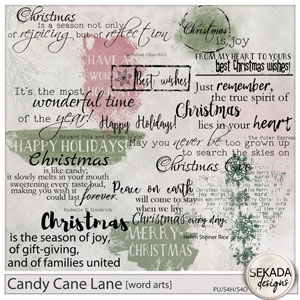 Christmas
is a season not only
of rejoicing but of reflection
HAVE A
Christmas
is joy
FROM MY HEART TO YOURS
best Christmas wishes!
best wishes!
It's the most
wonderful time
of the year!
Edward Pola and George
Just remember,
the true spirit of
Christmas
lies in your heart
The Polar Express
Happy Holidays!
HAPPY HOLIDAYS!
May you never be too grown up
to search the skies
on Christmas Eve
Christmas
is like candy;
it slowly melts in your mouth
sweetening every taste bud,
making you wish it
could last forever.
Peace on earth
will come to stay
when we live
Christmas every day.
Helen Steiner Rice
MERRY
CHRISTMAS
Christmas
is the season of joy,
of gift-giving,
and of families united
SEKADA
designs
Candy Cane Lane [word arts]
PU/S4H/S4O